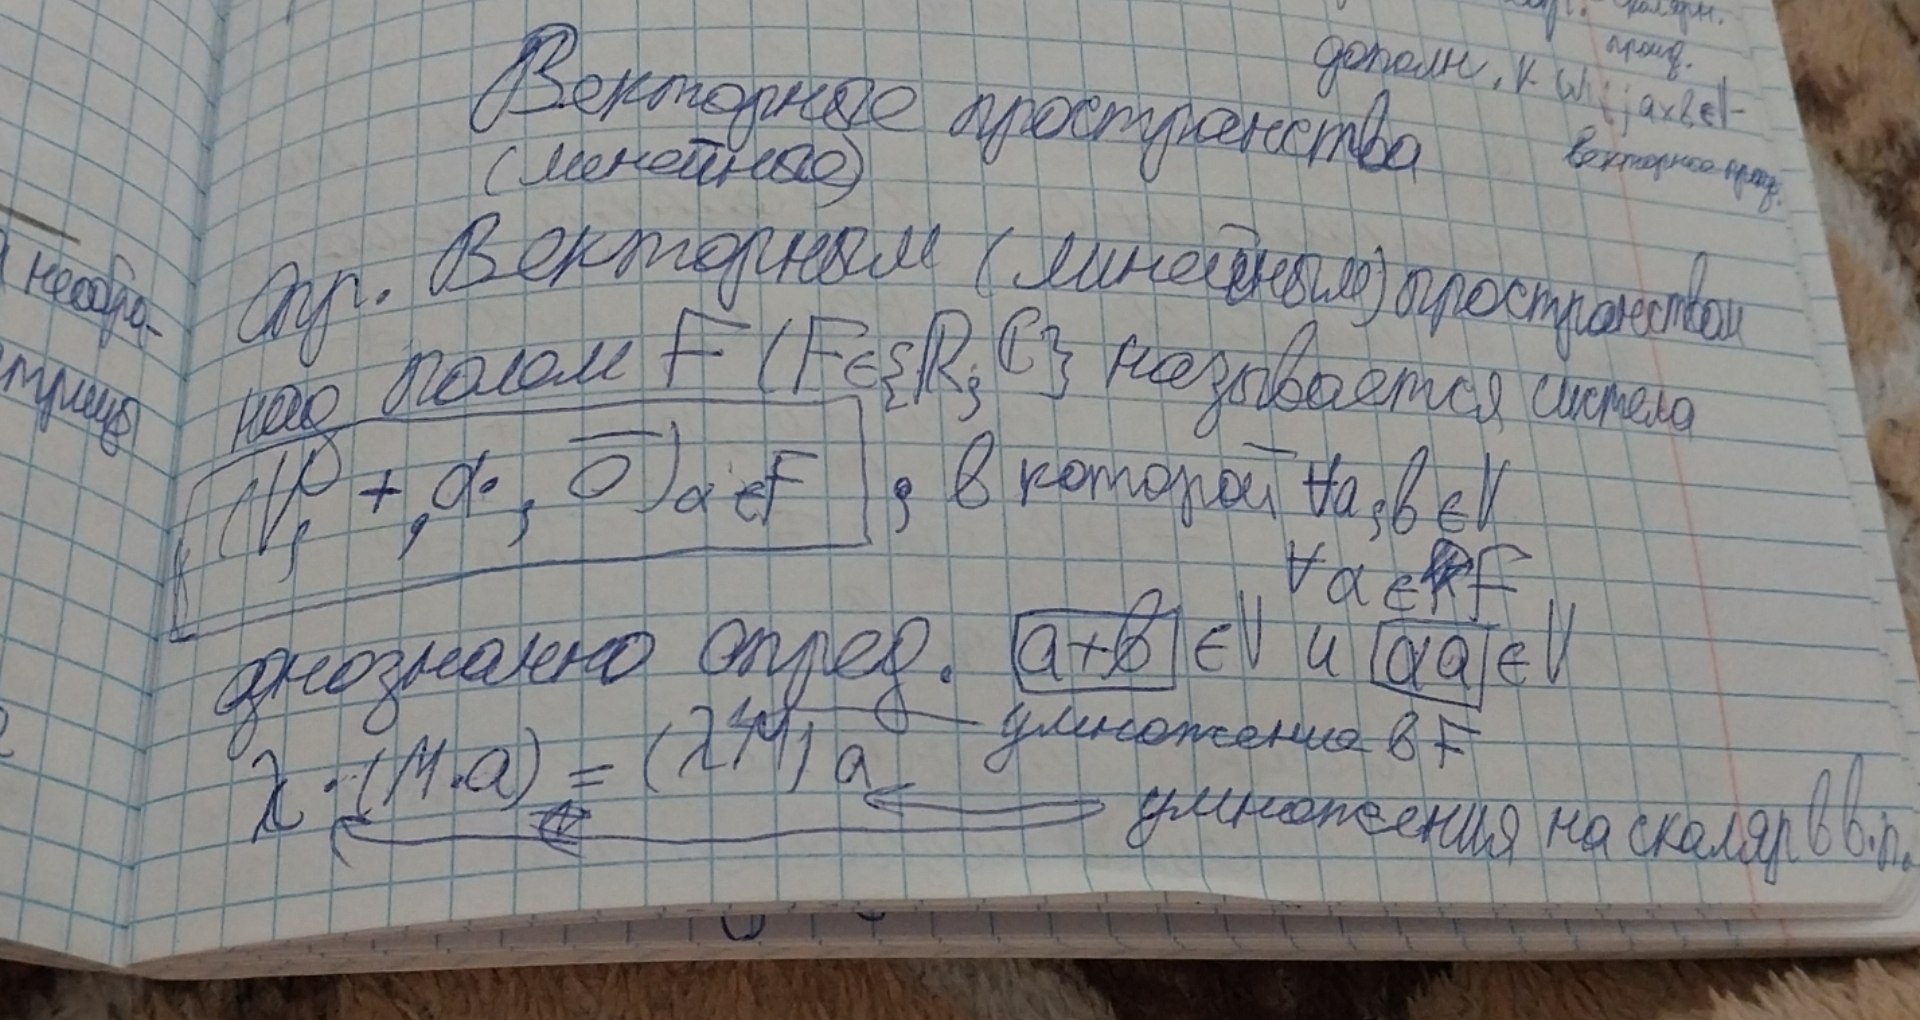 скалярн.
произ.
дополн. к
; a×b∈V
векторное произ.
Векторные пространства
(линейные)
необра-
Опр. Векторным (линейным) пространством
над полем F (F∈{R; C} называется система
(V, +, α·, ō) α∈F , в которой ∀a, b ∈ V
∀α∈F
однозначно опред. a+b ∈V и αa ∈ V
умножение в F
λ·(μ·a) = (λμ) a
умножения на скаляр в в.п.